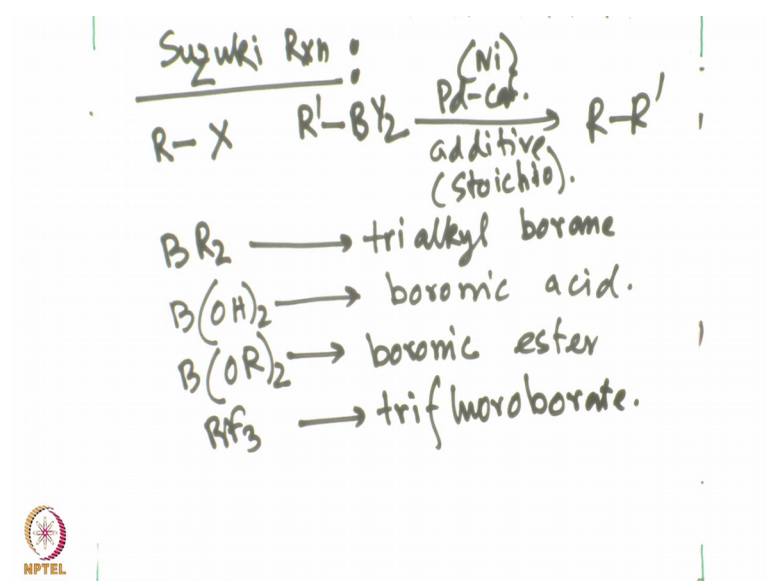 Suzuki Rxn :
(Ni)
Pd-cat.
R-X R'-BY2 → R-R'
additive
(stoichio).
BR2 → trialkyl borane
B(OH)2 → boronic acid.
B(OR)2 → boronic ester
→ trifluoroborate.
NPTEL